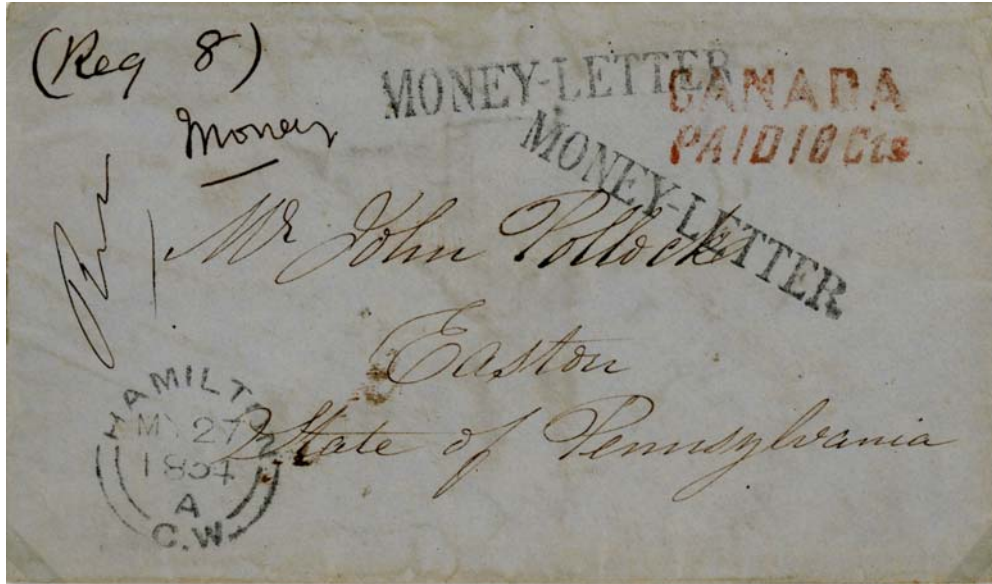 (Reg 8)
Money
MONEY-LETTER
CANADA
PAID 10 Cts
MONEY-LETTER
Mr John Pollock
Easton
State of Pennsylvania
HAMILTON
MY 27
1854
A
C.W.